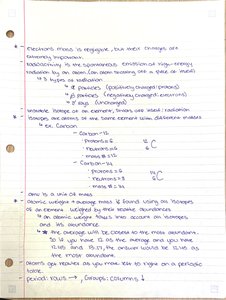 - Electrons mass is negligible, but their charges are
extremely important.
- Radioactivity is the spontaneous emission of high-energy
radiation by an atom (an atom kicking out a piece of itself)
↳ 3 types of radiation
↳ α particles (positively charged: protons)
β particles (negatively charged: electrons)
γ rays (uncharged)
- isotope of an element,
- Isotopes are atoms of the same element with different masses
↳ ex. Carbon
- Carbon-12
· Protons = 6
· neutrons = 6
· mass # = 12
12
6 C
- Carbon-14
· protons = 6
· neutrons = 8
· mass # = 14
14
6 C
- amu is a unit of mass
- Atomic weight → average mass of found using all isotopes
of an element weighed by their relative abundances
↳ an atomic weight takes into account all isotopes
and its abundance
↳ * the average will be closer to the most abundant.
so if you have 12 as the average and you have
12.45 and 15.17, the answer would be 12.45 as
the most abundant
- Atoms get heavier as you make left to right on a periodic
table.
- period: rows →, Groups: columns ↓